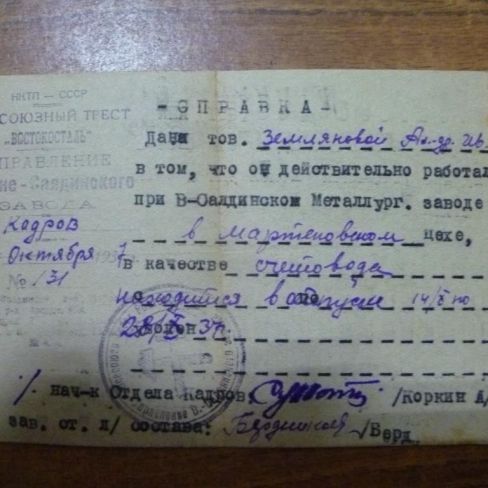 НКТП — СССР
СОЮЗНЫЙ ТРЕСТ
"ВОСТОКОСТАЛЬ"
ПРАВЛЕНИЕ
не-Салдинского
ЗАВОДА
Кадров
Октября 193
№ 131
- СПРАВКА -
Дана тов. Земляновой Ал-др. Ив
в том, что он действительно работал
при В-Салдинском Металлург. заводе
в мартеновском цехе,
в качестве счетовода
находится в отпуске 14/X по
28/X 37г.
нач-к Отдела Кадров /Коркин А/
зав. от. л/ состава: /Берд.